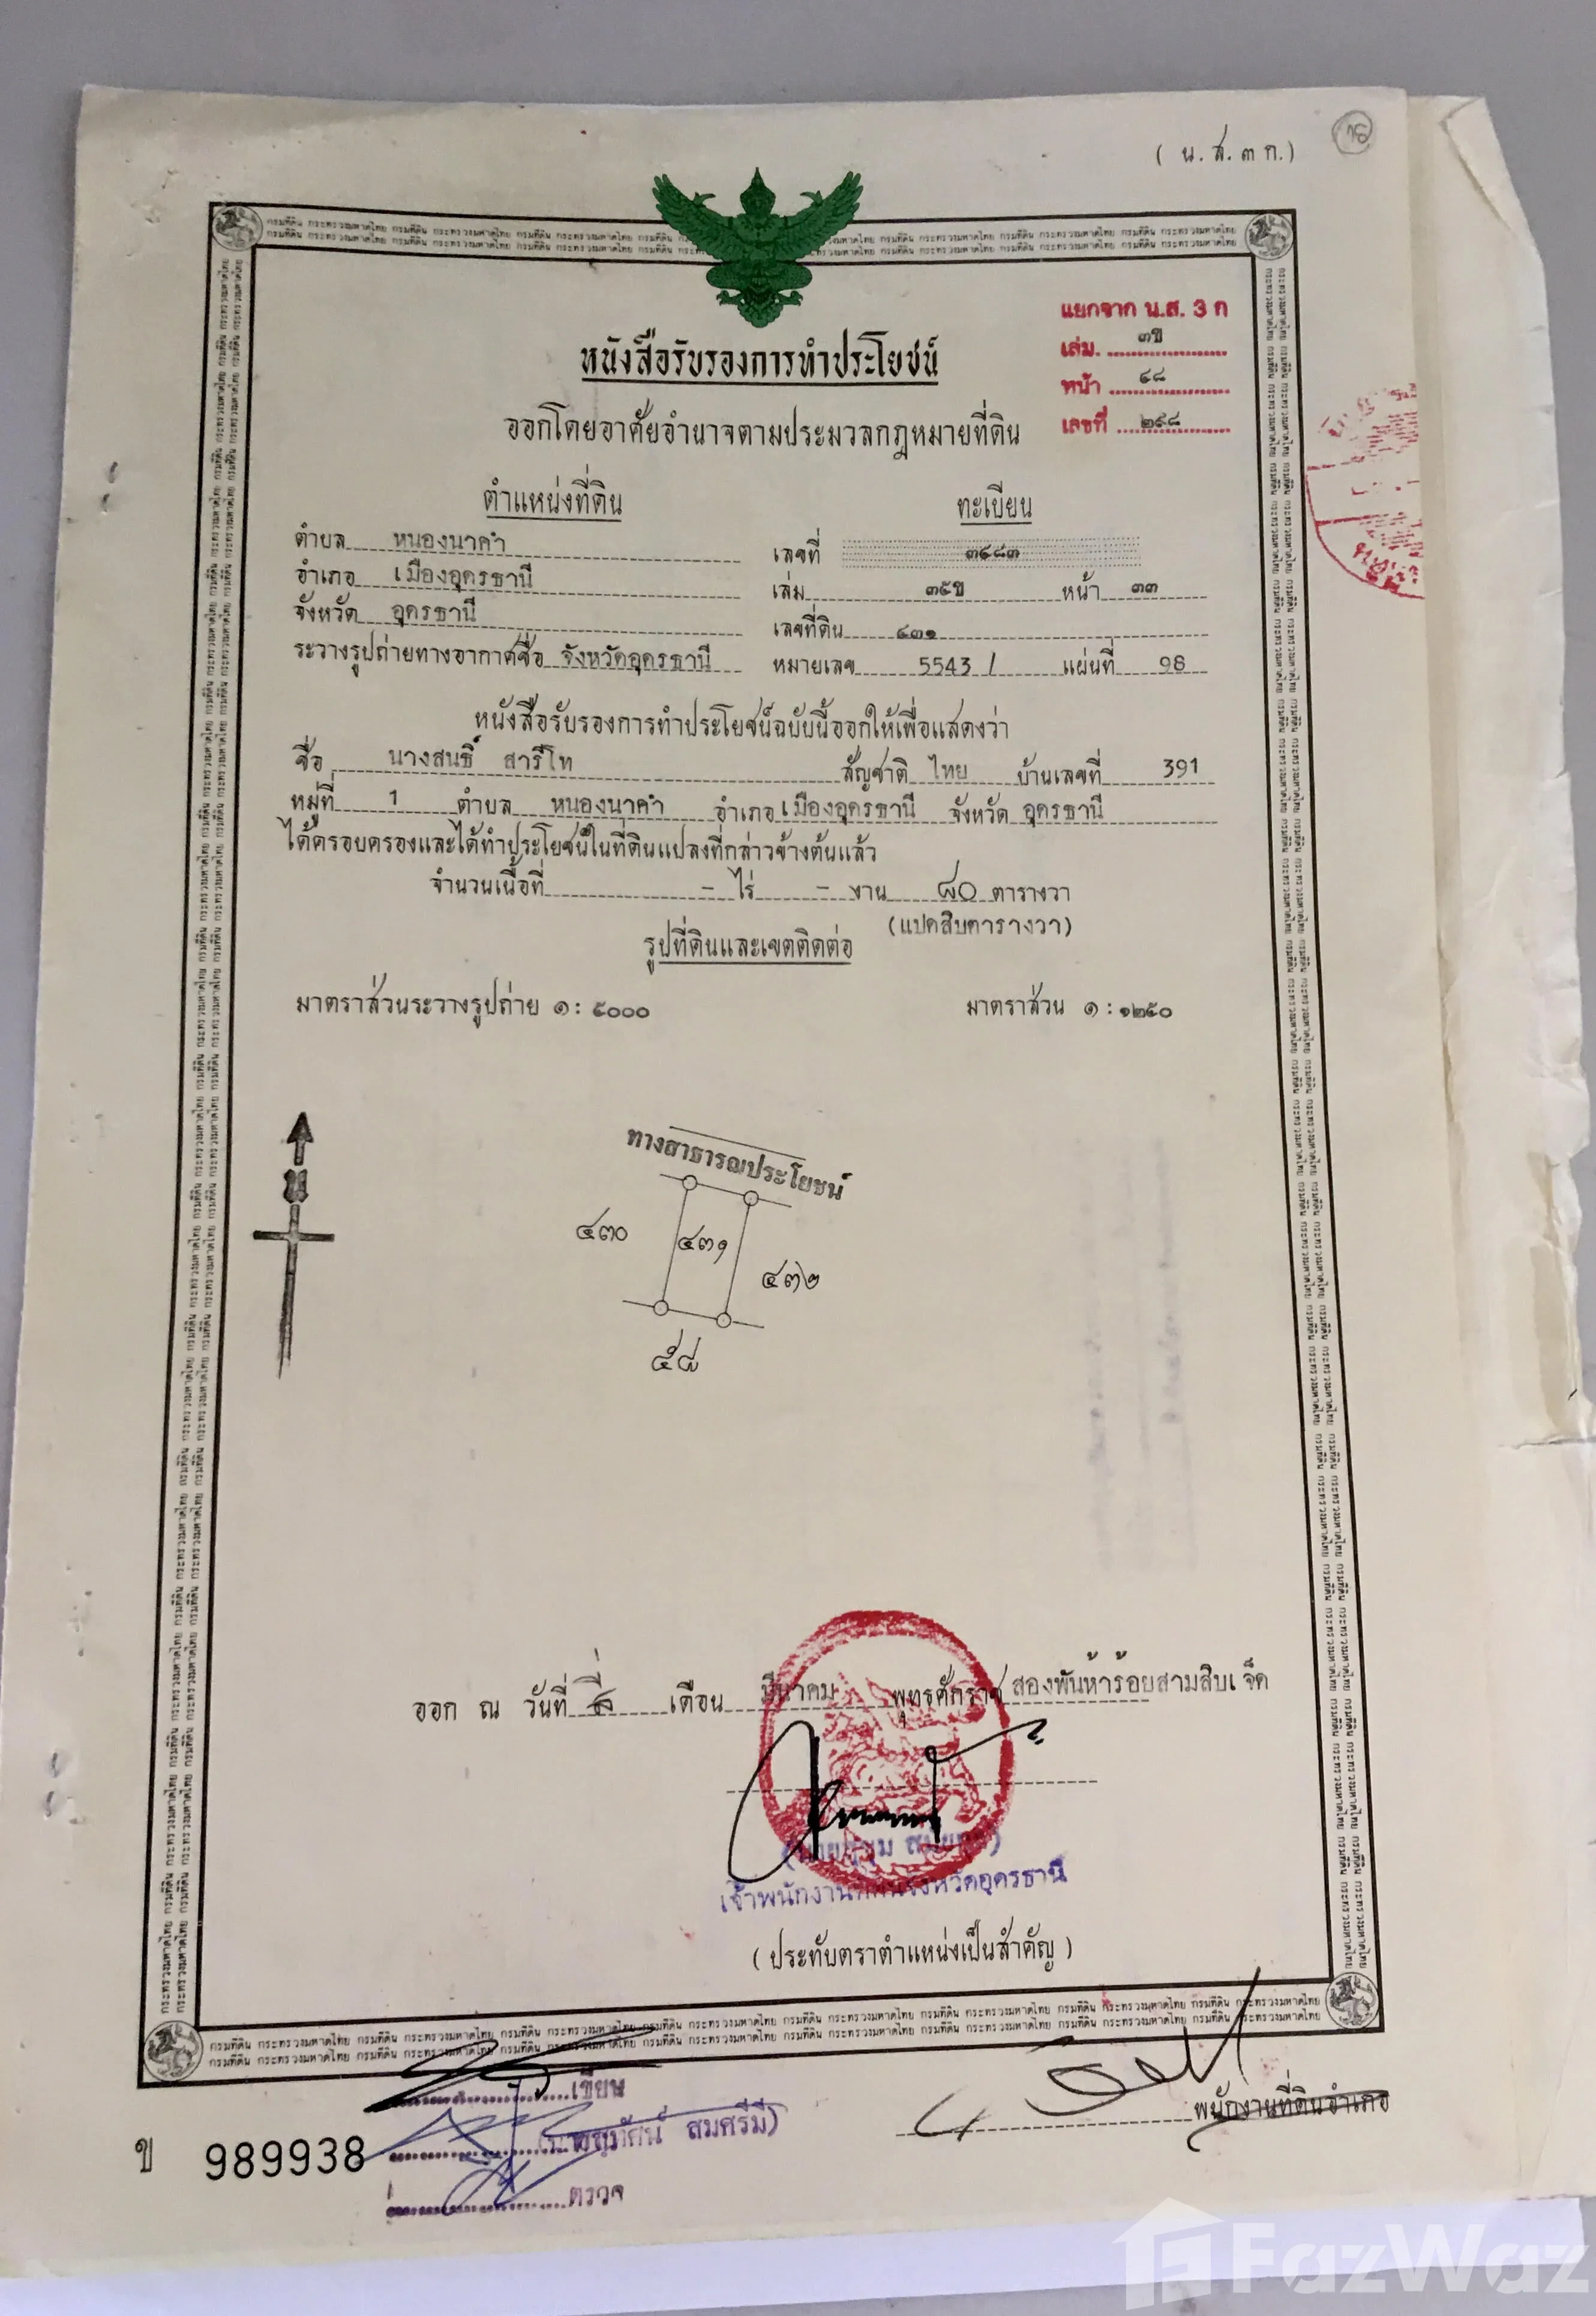 ( น.ส. ๓ ก.)
แยกจาก น.ส. 3 ก
เล่ม ๓ข
หน้า ๔๘
เลขที่ ๒๙๘
หนังสือรับรองการทำประโยชน์
ออกโดยอาศัยอำนาจตามประมวลกฎหมายที่ดิน
ตำแหน่งที่ดิน
ทะเบียน
ตำบล หนองนาคำ เลขที่ ๓๔๘๓
อำเภอ เมืองอุดรธานี เล่ม ๓๕ข หน้า ๓๓
จังหวัด อุดรธานี เลขที่ดิน ๔๓๑
ระวางรูปถ่ายทางอากาศชื่อ จังหวัดอุดรธานี หมายเลข 5543 / แผ่นที่ 98
หนังสือรับรองการทำประโยชน์ฉบับนี้ออกให้เพื่อแสดงว่า
ชื่อ นางสนธิ์ สารีโท สัญชาติ ไทย บ้านเลขที่ 391
หมู่ที่ 1 ตำบล หนองนาคำ อำเภอ เมืองอุดรธานี จังหวัด อุดรธานี
ได้ครอบครองและได้ทำประโยชน์ในที่ดินแปลงที่กล่าวข้างต้นแล้ว
จำนวนเนื้อที่ - ไร่ - งาน ๘๐ ตารางวา
(แปดสิบตารางวา)
รูปที่ดินและเขตติดต่อ
มาตราส่วนระวางรูปถ่าย ๑ : ๕๐๐๐ มาตราส่วน ๑ : ๑๒๕๐
น
ทางสาธารณประโยชน์
๔๓๐ ๔๓๑ ๔๓๒
๕๘
ออก ณ วันที่ เดือน มีนาคม พุทธศักราช สองพันห้าร้อยสามสิบเจ็ด
เจ้าพนักงานที่ดินจังหวัดอุดรธานี
( ประทับตราตำแหน่งเป็นสำคัญ )
กรมที่ดิน กระทรวงมหาดไทย
เขียน
(นายสุทัศน์ สมศรีมี)
ตรวจ
พนักงานที่ดินอำเภอ
ข 989938
FazWaz